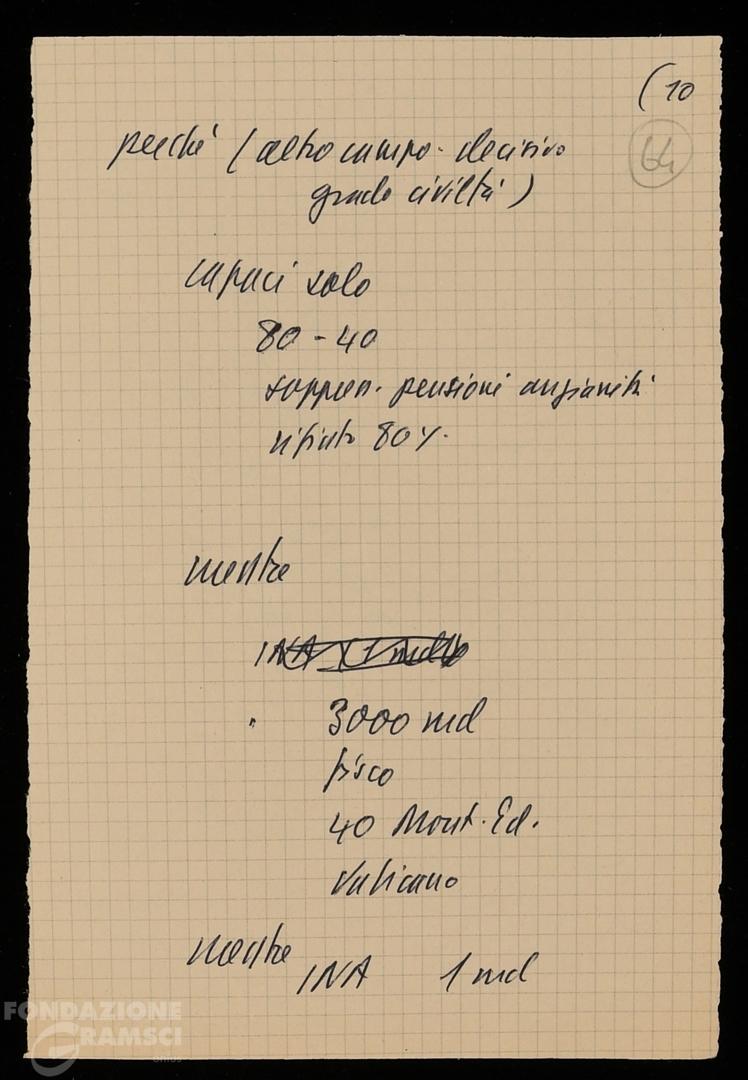 (10
64
perché (altro campo - decisivo
grado civiltà)
capaci solo
80 - 40
soppres. pensioni anzianità
rifiuto 80%.
mentre
INA 1 md
" 3000 md
fisco
40 Mont. Ed.
Vaticano
mentre
INA 1 md
FONDAZIONE
GRAMSCI
onlus